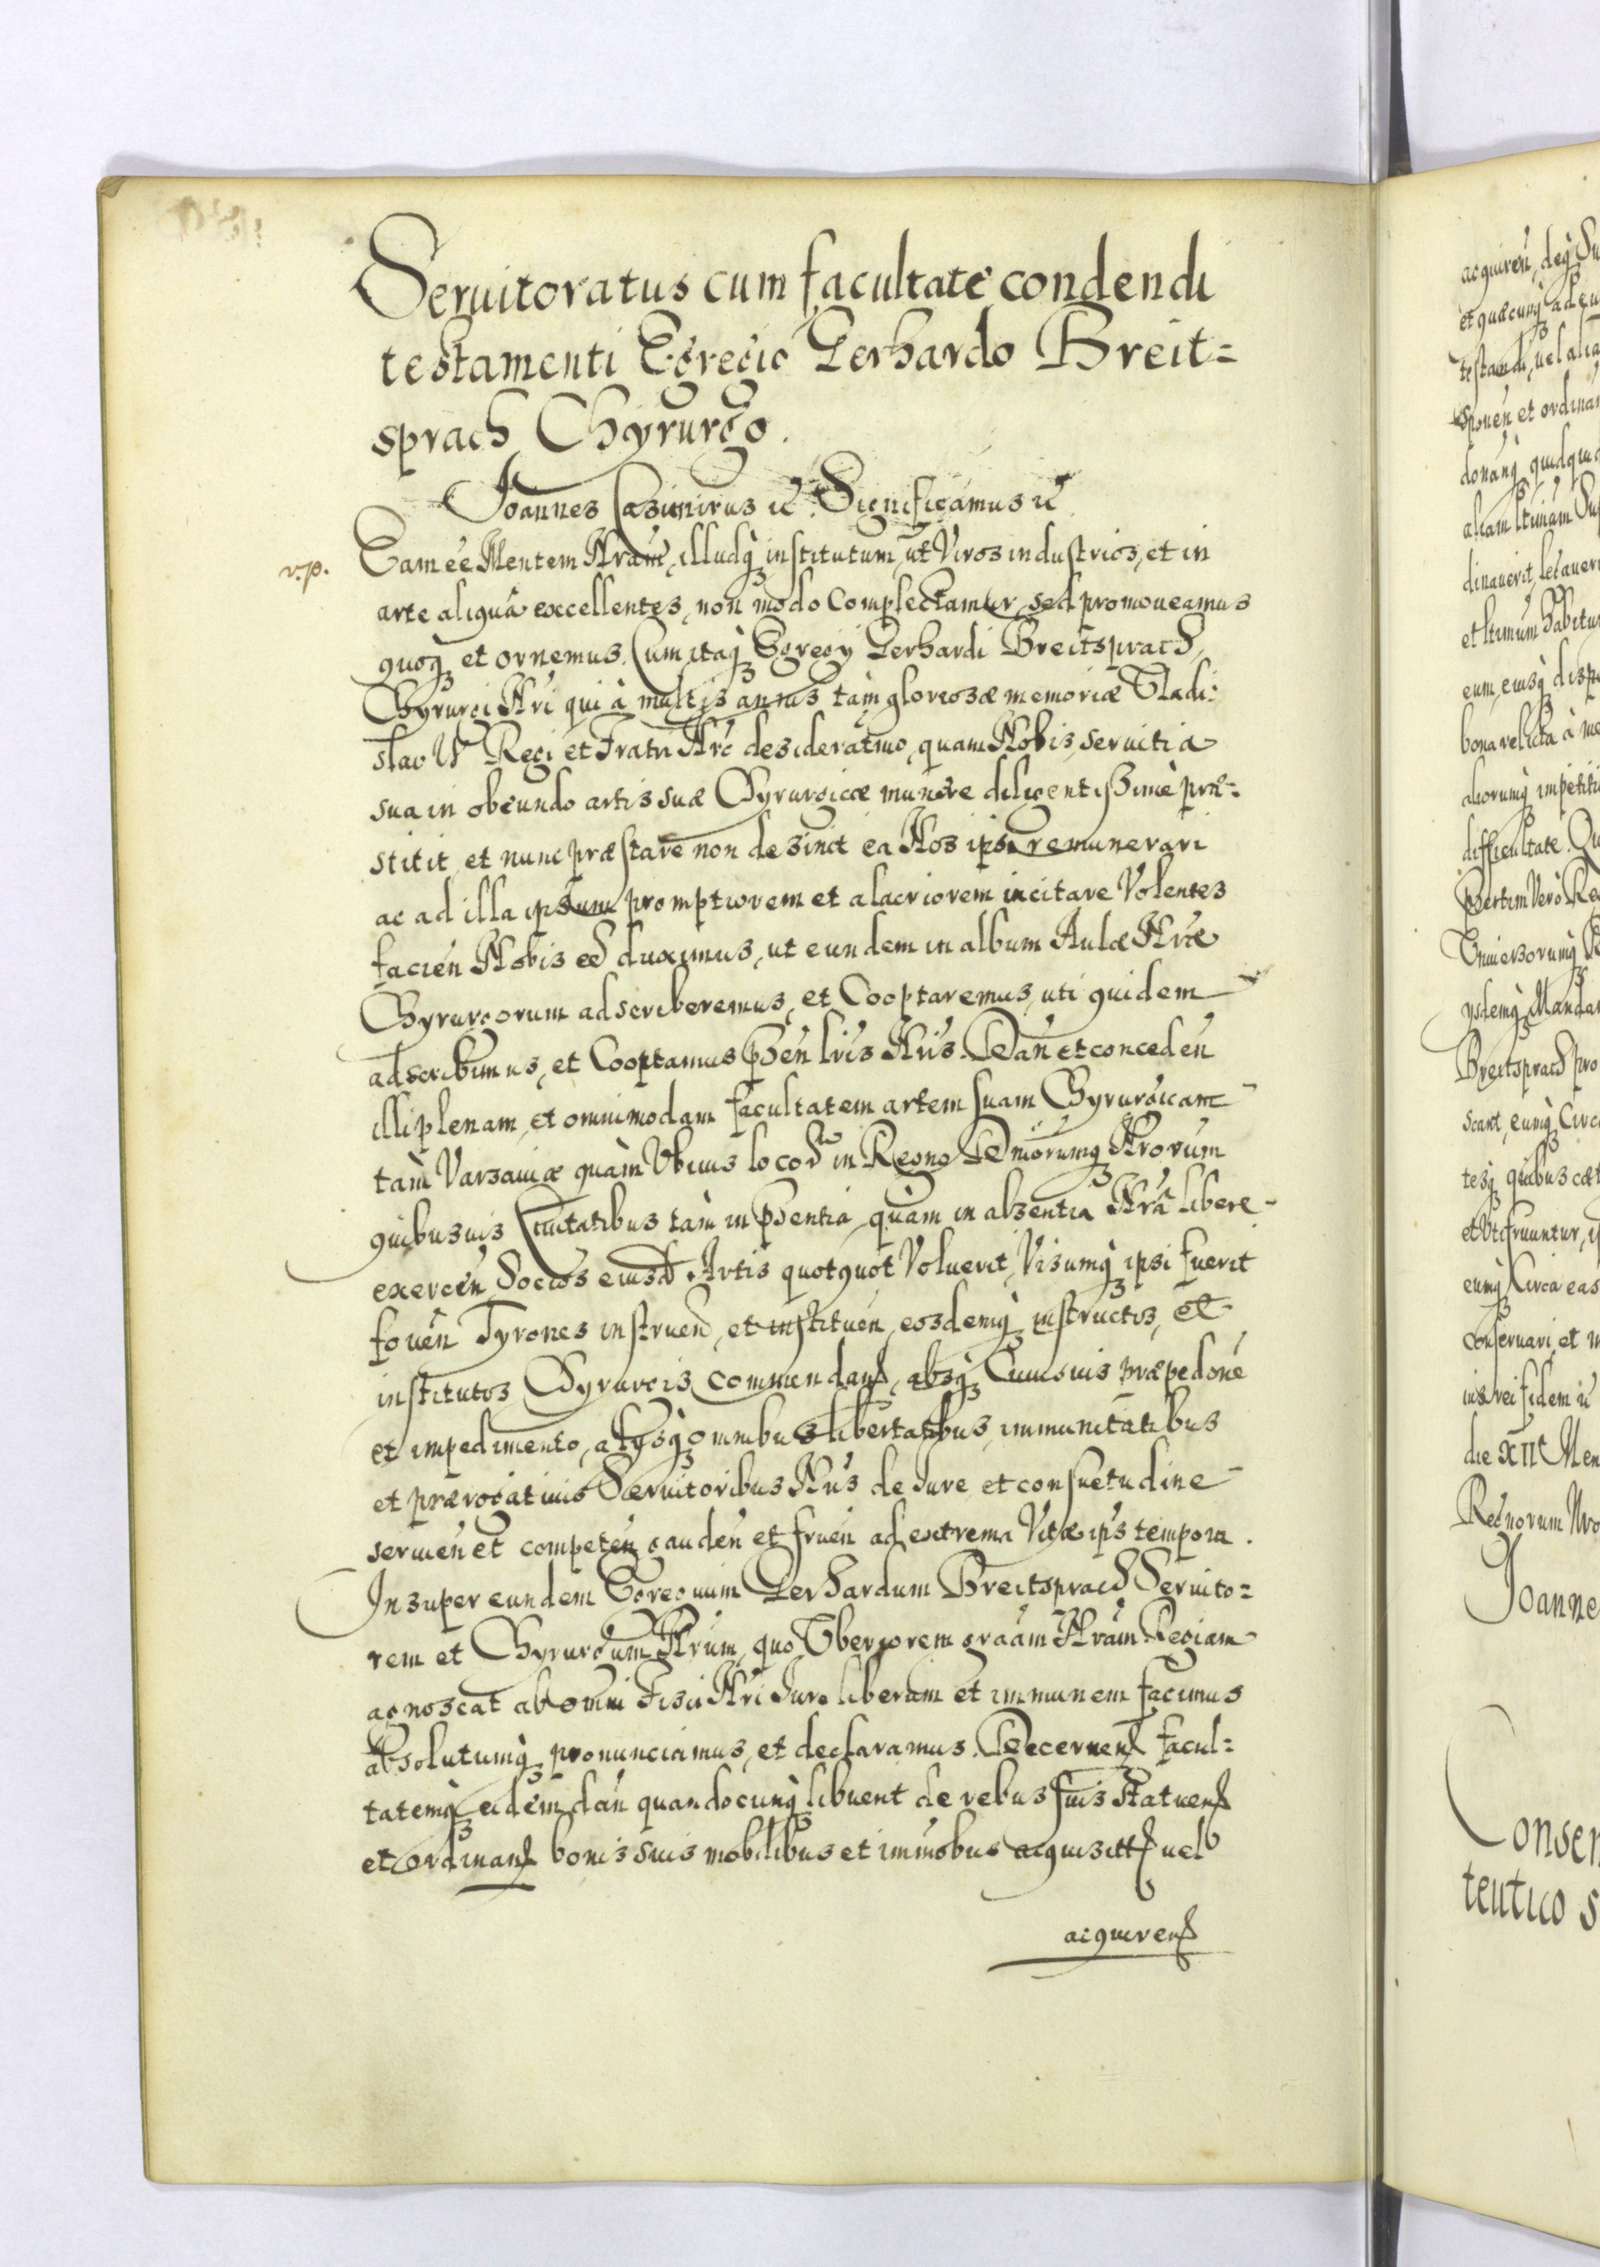 Seruitoratus cum facultate condendi
testamenti Egregio Gerhardo Breit=
sprach Chyrurgo.
Joannes Casimirus etc Significamus etc
v.p.
Eam ee Mentem Nram, illudq institutum, ut Viros industrios, et in
arte aliqua excellentes, non modo Complectamur, sed promoveamus
quoq et ornemus. Cum itaq Egregij Gerhardi Breitsprach,
Chyrurgi Nri qui à multis annis tam gloriosæ memoriæ Vladi=
slao IV Regi et Fratri Nro desideratmo, quam Nobis, seruitia
sua in obeundo artis suæ Chyrurgicæ munere diligentissimè præ=
stitit, et nunc præstare non desinit ea Nos ipsi remunerari
ac ad illa ipsum promptiorem et alacriorem incitare Volentes
facien Nobis ee duximus, ut eundem in album Aulæ Nræ
Chyrurgorum adscriberemus, et Cooptaremus, uti quidem
adscribimus, et Cooptamus pnsen lris Nris. Dan et conceden
illi plenam, et omnimodam facultatem artem suam Chyrurgicam
tàm Varsauiæ quàm Ubiuis locor in Regno Dniorumq Nrorum
quibusuis Ciuitatibus tàm in pnsentia, quàm in absentia Nra libere
exercen Socios eiusd Artis quotquot Voluerit, Visumq ipsi fuerit
fouen Tyrones instruen, et instituen, eosdemq instructis, et
institutos Chyrurgis commendand, absq Cuiusuis præpedone
et impedimento, alysq omnibus libertatibus, immunitatibus
et prærogatiuis Seruitoribus Nris de iure et consuetudine
seruien et competen gauden et fruen ad extrema Vitæ ips tempora.
Insuper eundem Egregium Gerhardum Breitsprach Seruito=
rem et Chyrurgum Nrum, quo Uberiorem graam Nram Regiam
agnoscat ab omni Fisci Nri iure liberum et immunem facimus
absolutumq pronunciamus, et declaramus. Decernend facul=
tatemq eidem dan quandocunq libuerit de rebus suis statuend
et ordinand bonis suis mobilibus et immobus acquisitis uel
acquirend
acquiren, deq Su
et quæcunq
testandi, uel alia
sponen et ordinan
donanq, quidqui
aliam ltimam
dinauerit, legaueri
et ltimum habitu
eum, eiusq dispo
bona relicta à me
aliorumq impetiti
difficultate. Qu
Vniuersorumq
ysdemq Mandan
Breitsprach pro
scant, eumq Circa
tesq quibus cæt
et Uti fruuntur, i
eumq Circa eas
conseruari, et
ius rei fidem etc
die XII Men
Regnorum Nro
Joanne
Consen
teutico s